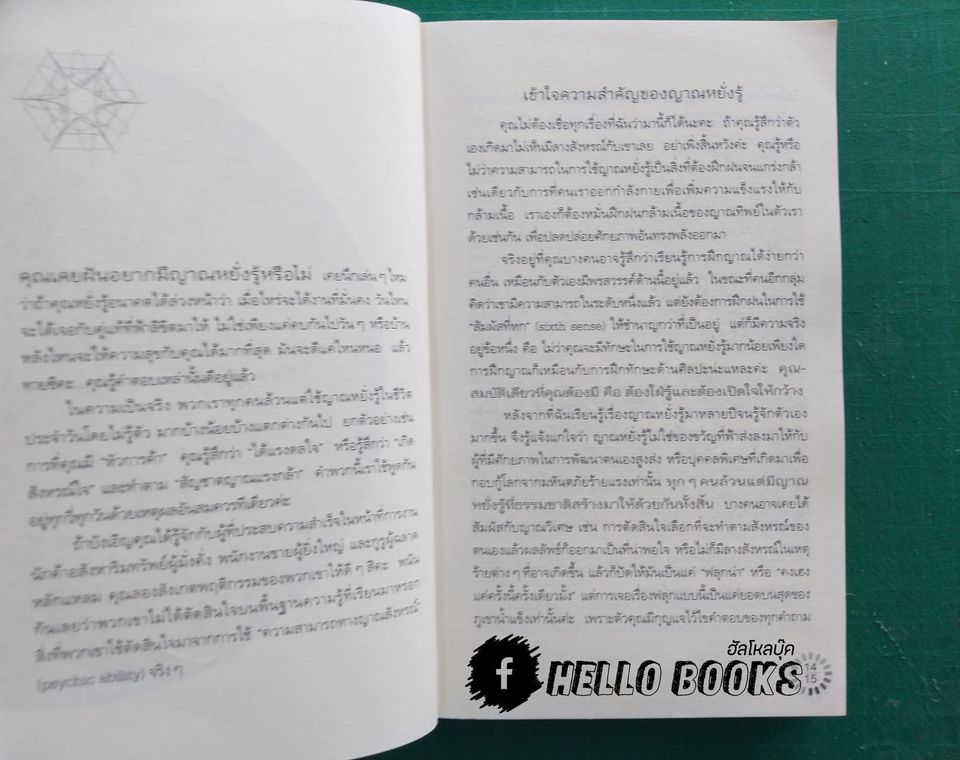 คุณเคยฝันอยากมีญาณหยั่งรู้หรือไม่ เคยนึกเล่นๆ ไหม
ว่าถ้าคุณหยั่งรู้อนาคตได้ล่วงหน้าว่า เมื่อไหร่จะได้งานที่มั่นคง วันไหน
จะได้เจอกับคู่แท้ที่ฟ้าลิขิตมาให้ ไม่ใช่เพียงแค่คบกันไปวันๆ หรือบ้าน
หลังไหนจะให้ความสุขกับคุณได้มากที่สุด มันจะดีแค่ไหนหนอ แล้ว
ทายซิคะ...คุณรู้คำตอบเหล่านั้นดีอยู่แล้ว
ในความเป็นจริง พวกเราทุกคนล้วนแต่ใช้ญาณหยั่งรู้ในชีวิต
ประจำวันโดยไม่รู้ตัว มากบ้างน้อยบ้างแตกต่างกันไป ยกตัวอย่างเช่น
การที่คุณมี "หัวการค้า" คุณรู้สึกว่า "ได้แรงดลใจ" หรือรู้สึกว่า "เกิด
สังหรณ์ใจ" และทำตาม "สัญชาตญาณแรงกล้า" คำพวกนี้เราใช้พูดกัน
อยู่ทุกวี่ทุกวันด้วยเหตุผลอันสมควรทีเดียวค่ะ
ถ้าบังเอิญคุณได้รู้จักกับผู้ที่ประสบความสำเร็จในหน้าที่การงาน
นักค้าอสังหาริมทรัพย์ผู้มั่งคั่ง พนักงานขายผู้ยิ่งใหญ่ และกูรูผู้ฉลาด
หลักแหลม คุณลองสังเกตพฤติกรรมของพวกเขาให้ดีๆ สิคะ พนัน
กันเลยว่าพวกเขาไม่ได้ตัดสินใจบนพื้นฐานความรู้ที่เรียนมาหรอก
สิ่งที่พวกเขาใช้ตัดสินใจมาจากการใช้ "ความสามารถทางญาณสังหรณ์"
(psychic ability) จริงๆ
เข้าใจความสำคัญของญาณหยั่งรู้
คุณไม่ต้องเชื่อทุกเรื่องที่ฉันว่ามานี้ก็ได้นะคะ ถ้าคุณรู้สึกว่าตัว
เองเกิดมาไม่เห็นมีลางสังหรณ์กับเขาเลย อย่าเพิ่งสิ้นหวังค่ะ คุณรู้หรือ
ไม่ว่าความสามารถในการใช้ญาณหยั่งรู้เป็นสิ่งที่ต้องฝึกฝนจนแกร่งกล้า
เช่นเดียวกับการที่คนเราออกกำลังกายเพื่อเพิ่มความแข็งแรงให้กับ
กล้ามเนื้อ เราเองก็ต้องหมั่นฝึกฝนกล้ามเนื้อของญาณทิพย์ในตัวเรา
ด้วยเช่นกัน เพื่อปลดปล่อยศักยภาพอันทรงพลังออกมา
จริงอยู่ที่คุณบางคนอาจรู้สึกว่าเรียนรู้การฝึกญาณได้ง่ายกว่า
คนอื่น เหมือนกับตัวเองมีพรสวรรค์ด้านนี้อยู่แล้ว ในขณะที่คนอีกกลุ่ม
คิดว่าเขามีความสามารถในระดับหนึ่งแล้ว แต่ยังต้องการฝึกฝนในการใช้
"สัมผัสที่หก" (sixth sense) ให้ชำนาญกว่าที่เป็นอยู่ แต่ก็มีความจริง
อยู่ข้อหนึ่ง คือ ไม่ว่าคุณจะมีทักษะในการใช้ญาณหยั่งรู้มากน้อยเพียงใด
การฝึกญาณก็เหมือนกับการฝึกทักษะด้านศิลปะน่ะแหละค่ะ คุณ-
สมบัติเดียวที่คุณต้องมี คือ ต้องใฝ่รู้และต้องเปิดใจให้กว้าง
หลังจากที่ฉันเรียนรู้เรื่องญาณหยั่งรู้มาหลายปีจนรู้จักตัวเอง
มากขึ้น จึงรู้แจ้งแก่ใจว่า ญาณหยั่งรู้ไม่ใช่ของขวัญที่ฟ้าส่งลงมาให้กับ
ผู้ที่มีศักยภาพในการพัฒนาตนเองสูงส่ง หรือบุคคลพิเศษที่เกิดมาเพื่อ
กอบกู้โลกจากมหันตภัยร้ายแรงเท่านั้น ทุกๆ คนล้วนแต่มีญาณ
หยั่งรู้ที่ธรรมชาติสร้างมาให้ด้วยกันทั้งสิ้น บางคนอาจเคยได้
สัมผัสกับญาณวิเศษ เช่น การตัดสินใจเลือกที่จะทำตามสังหรณ์ของ
ตนเองแล้วผลลัพธ์ก็ออกมาเป็นที่น่าพอใจ หรือไม่ก็มีลางสังหรณ์ในเหตุ
ร้ายต่างๆ ที่อาจเกิดขึ้น แล้วก็ปัดให้มันเป็นแค่ "ฟลุกน่า" หรือ "คงเฮง
แค่ครั้งนี้ครั้งเดียวมั้ง" แต่การเจอเรื่องฟลุกแบบนี้เป็นแค่ยอดบนสุดของ
ภูเขาน้ำแข็งเท่านั้นค่ะ เพราะตัวคุณมีกุญแจไว้ไขคำตอบของทุกคำถาม
ฮัลโหลบุ๊ค
f HELLO BOOKS
14
15